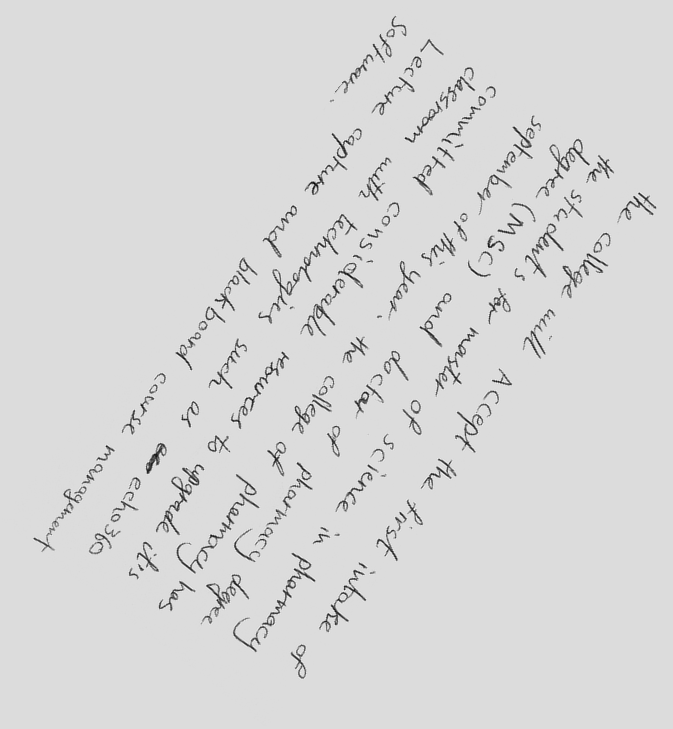 the college will Accept the first intake of
the student's for master of science in pharmacy
degree (MSC) and doctor of pharmacy degree
september of this year. the college of pharmacy has
committed considerable resources to upgrade it's
classroom with technologies such as echo360
Lecture capture and blackboard course management
software.